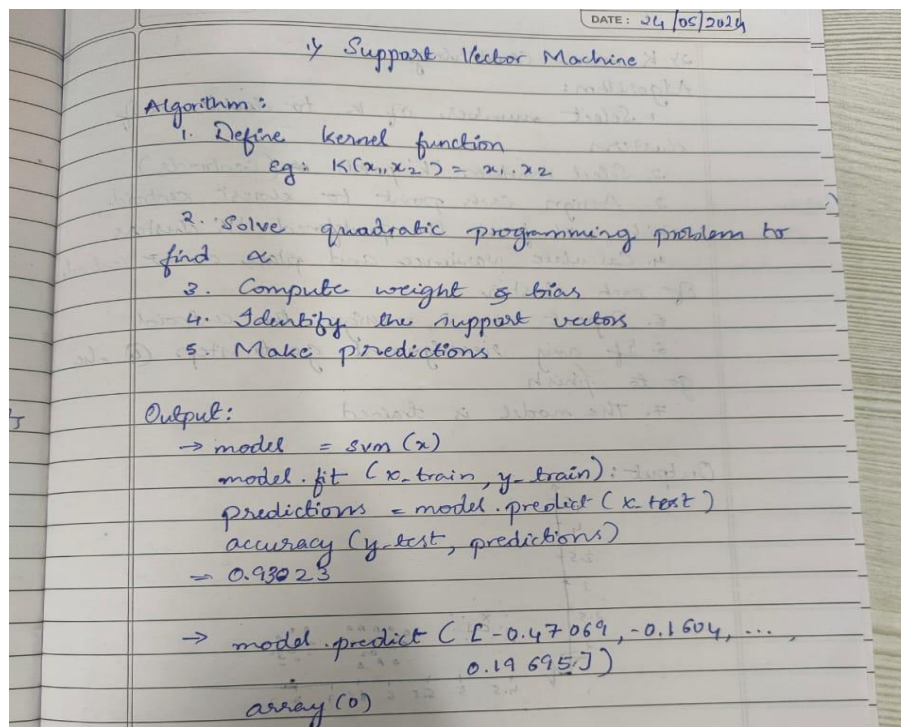 DATE: 24/05/2024
1) Support Vector Machine
Algorithm:
1. Define kernel function
eg: K(x1, x2) = x1 . x2
2. Solve quadratic programming problem to
find α
3. Compute weight & bias
4. Identify the support vectors
5. Make predictions
Output:
→ model = svm (x)
model.fit (x_train, y_train):
predictions = model.predict (x_test)
accuracy (y_test, predictions)
= 0.93023
→ model.predict ([-0.47069, -0.1604, ... ,
0.19695])
array (0)